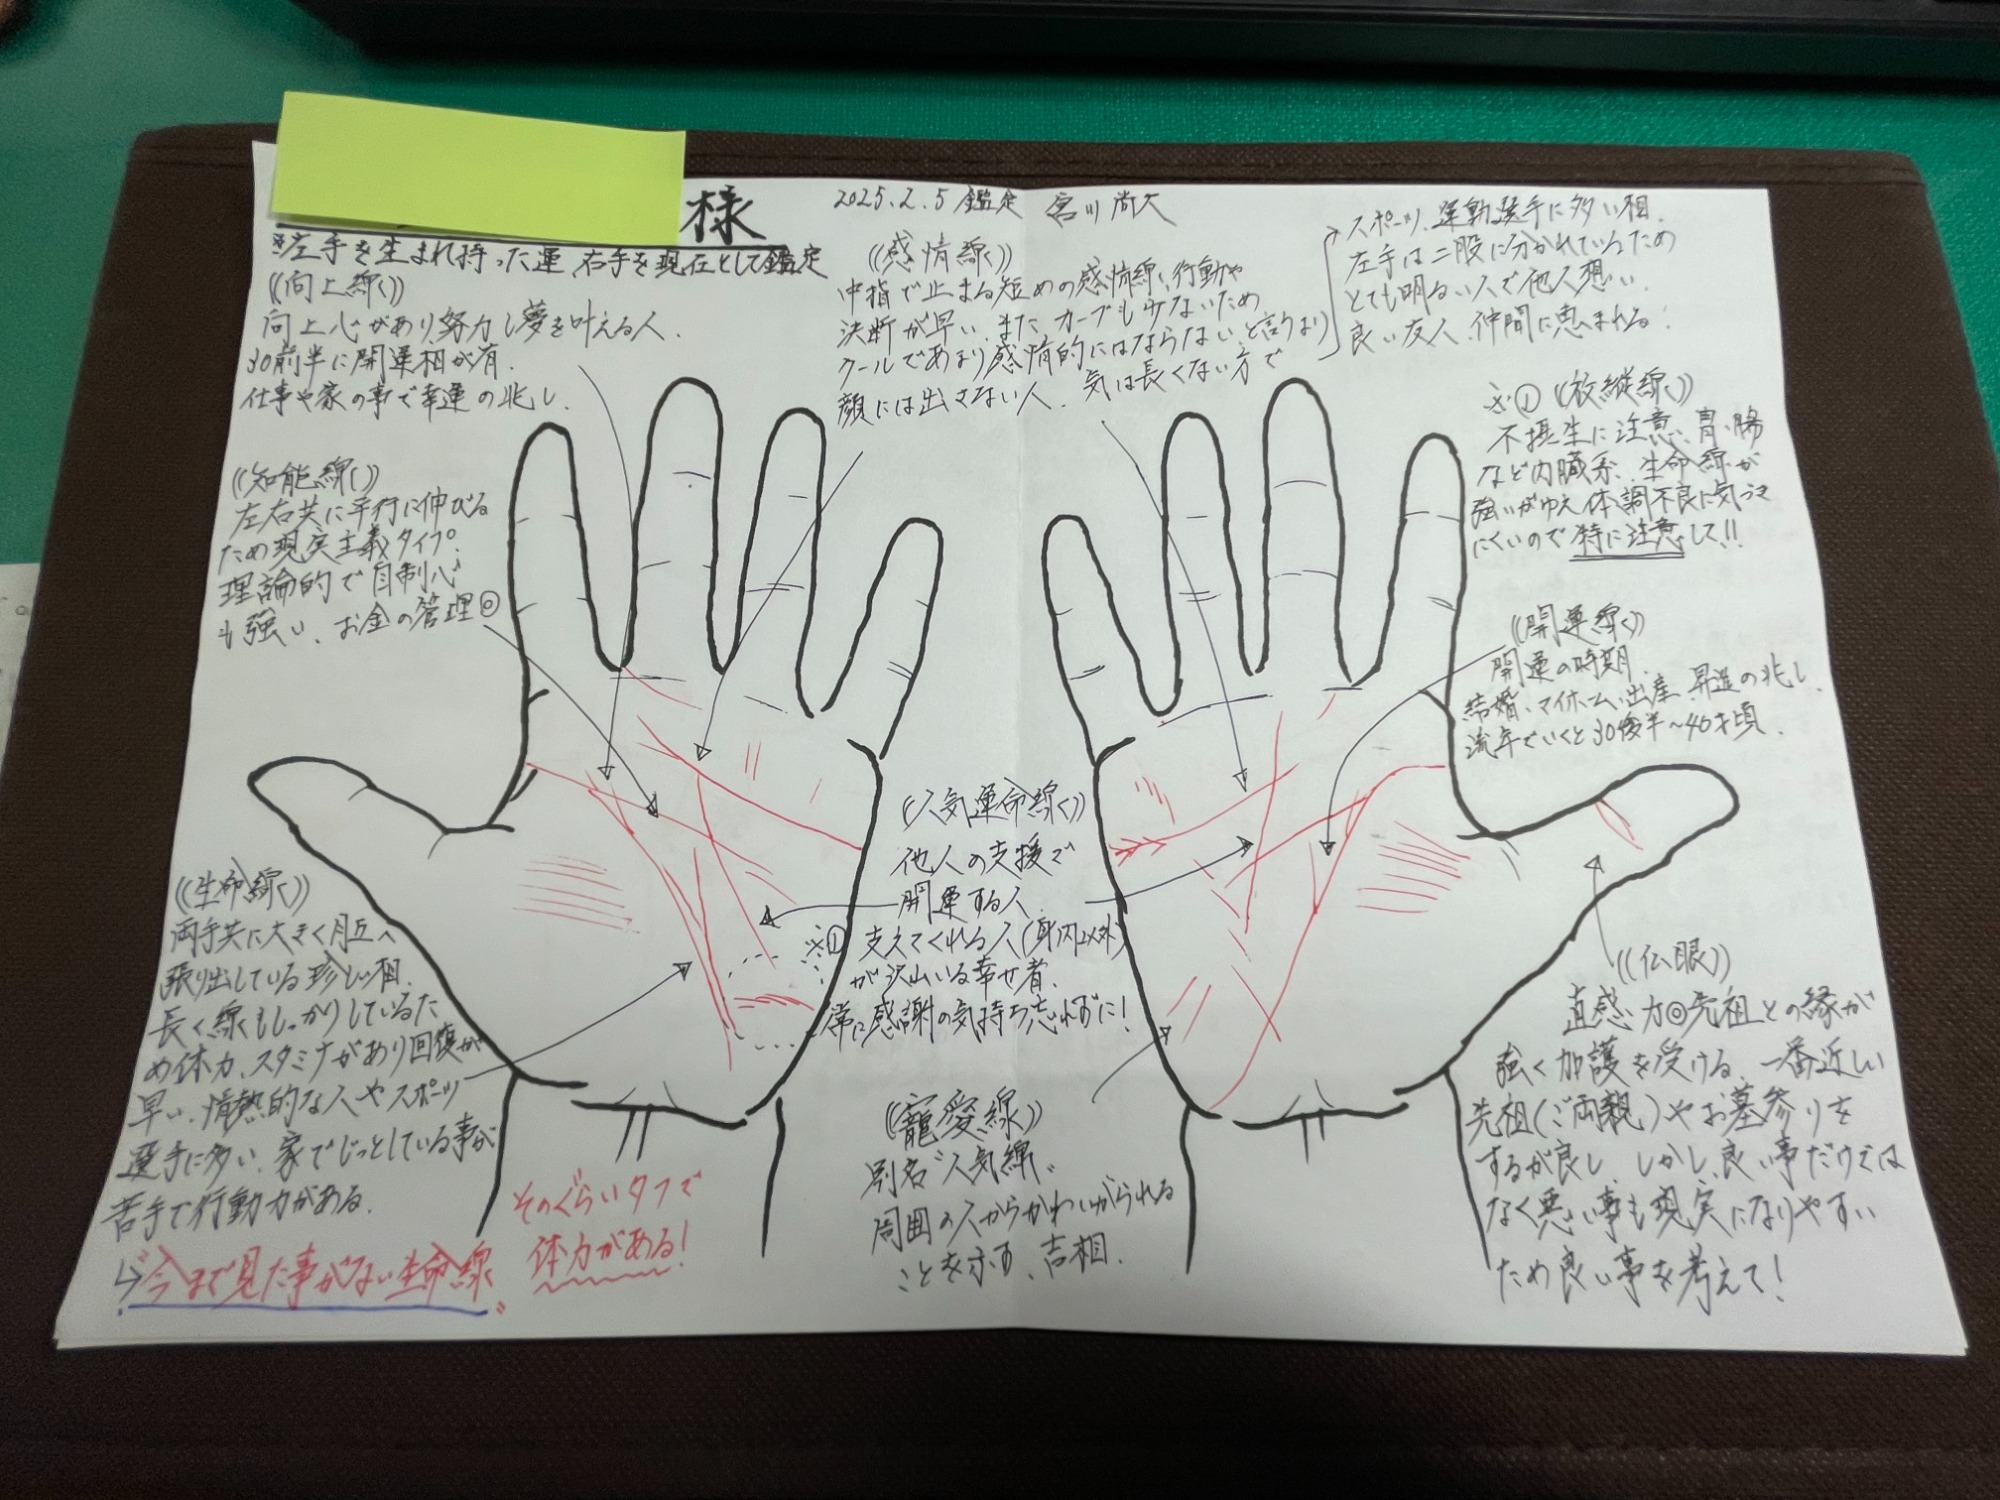 様
2025.2.5 鑑定 宮川 尚大
※左手を生まれ持った運、右手を現在として鑑定
((向上線))
向上心があり、努力し夢を叶える人。
30前半に開運相が有。
仕事や家の事で幸運の兆し。
((知能線))
左右共に平行に伸びる
ため現実主義タイプ。
理論的で自制心
も強い、お金の管理◎
((生命線))
両手共に大きく月丘へ
張り出している珍しい相。
長く線もしっかりしているた
め体力、スタミナがあり回復が
早い、情熱的な人やスポーツ
選手に多い、家でじっとしている事が
苦手で行動力がある。
↳"今まで見た事がない生命線"
そのぐらいタフで
体力がある!
((感情線))
中指で止まる短めの感情線、行動や
決断が早い、また、カーブも少ないため
クールであまり感情的にはならない、と言うより
顔には出さない人、気は長くない方で
→スポーツ、運動選手に多い相。
左手は二股に分かれているため
とても明るい人で他人想い。
良い友人、仲間に恵まれる。
((人気運命線))
他人の支援で
開運する人。
支えてくれる人(身内以外)
が沢山いる幸せ者。
常に感謝の気持ち忘れずに!
※①
((寵愛線))
別名"人気線"
周囲の人からかわいがられる
ことを示す、吉相。
※① ((放縦線))
不摂生に注意、胃、腸
など内臓系、生命線が
強いがゆえ体調不良に気づき
にくいので特に注意して!!
((開運線))
開運の時期。
結婚、マイホーム、出産、昇進の兆し。
流年でいくと30後半~40才頃。
((仏眼))
直感力◎先祖との縁が
強く加護を受ける、一番近しい
先祖(ご両親)やお墓参りを
するが良し、しかし、良い事だけでは
なく悪い事も現実になりやすい
ため良い事を考えて!